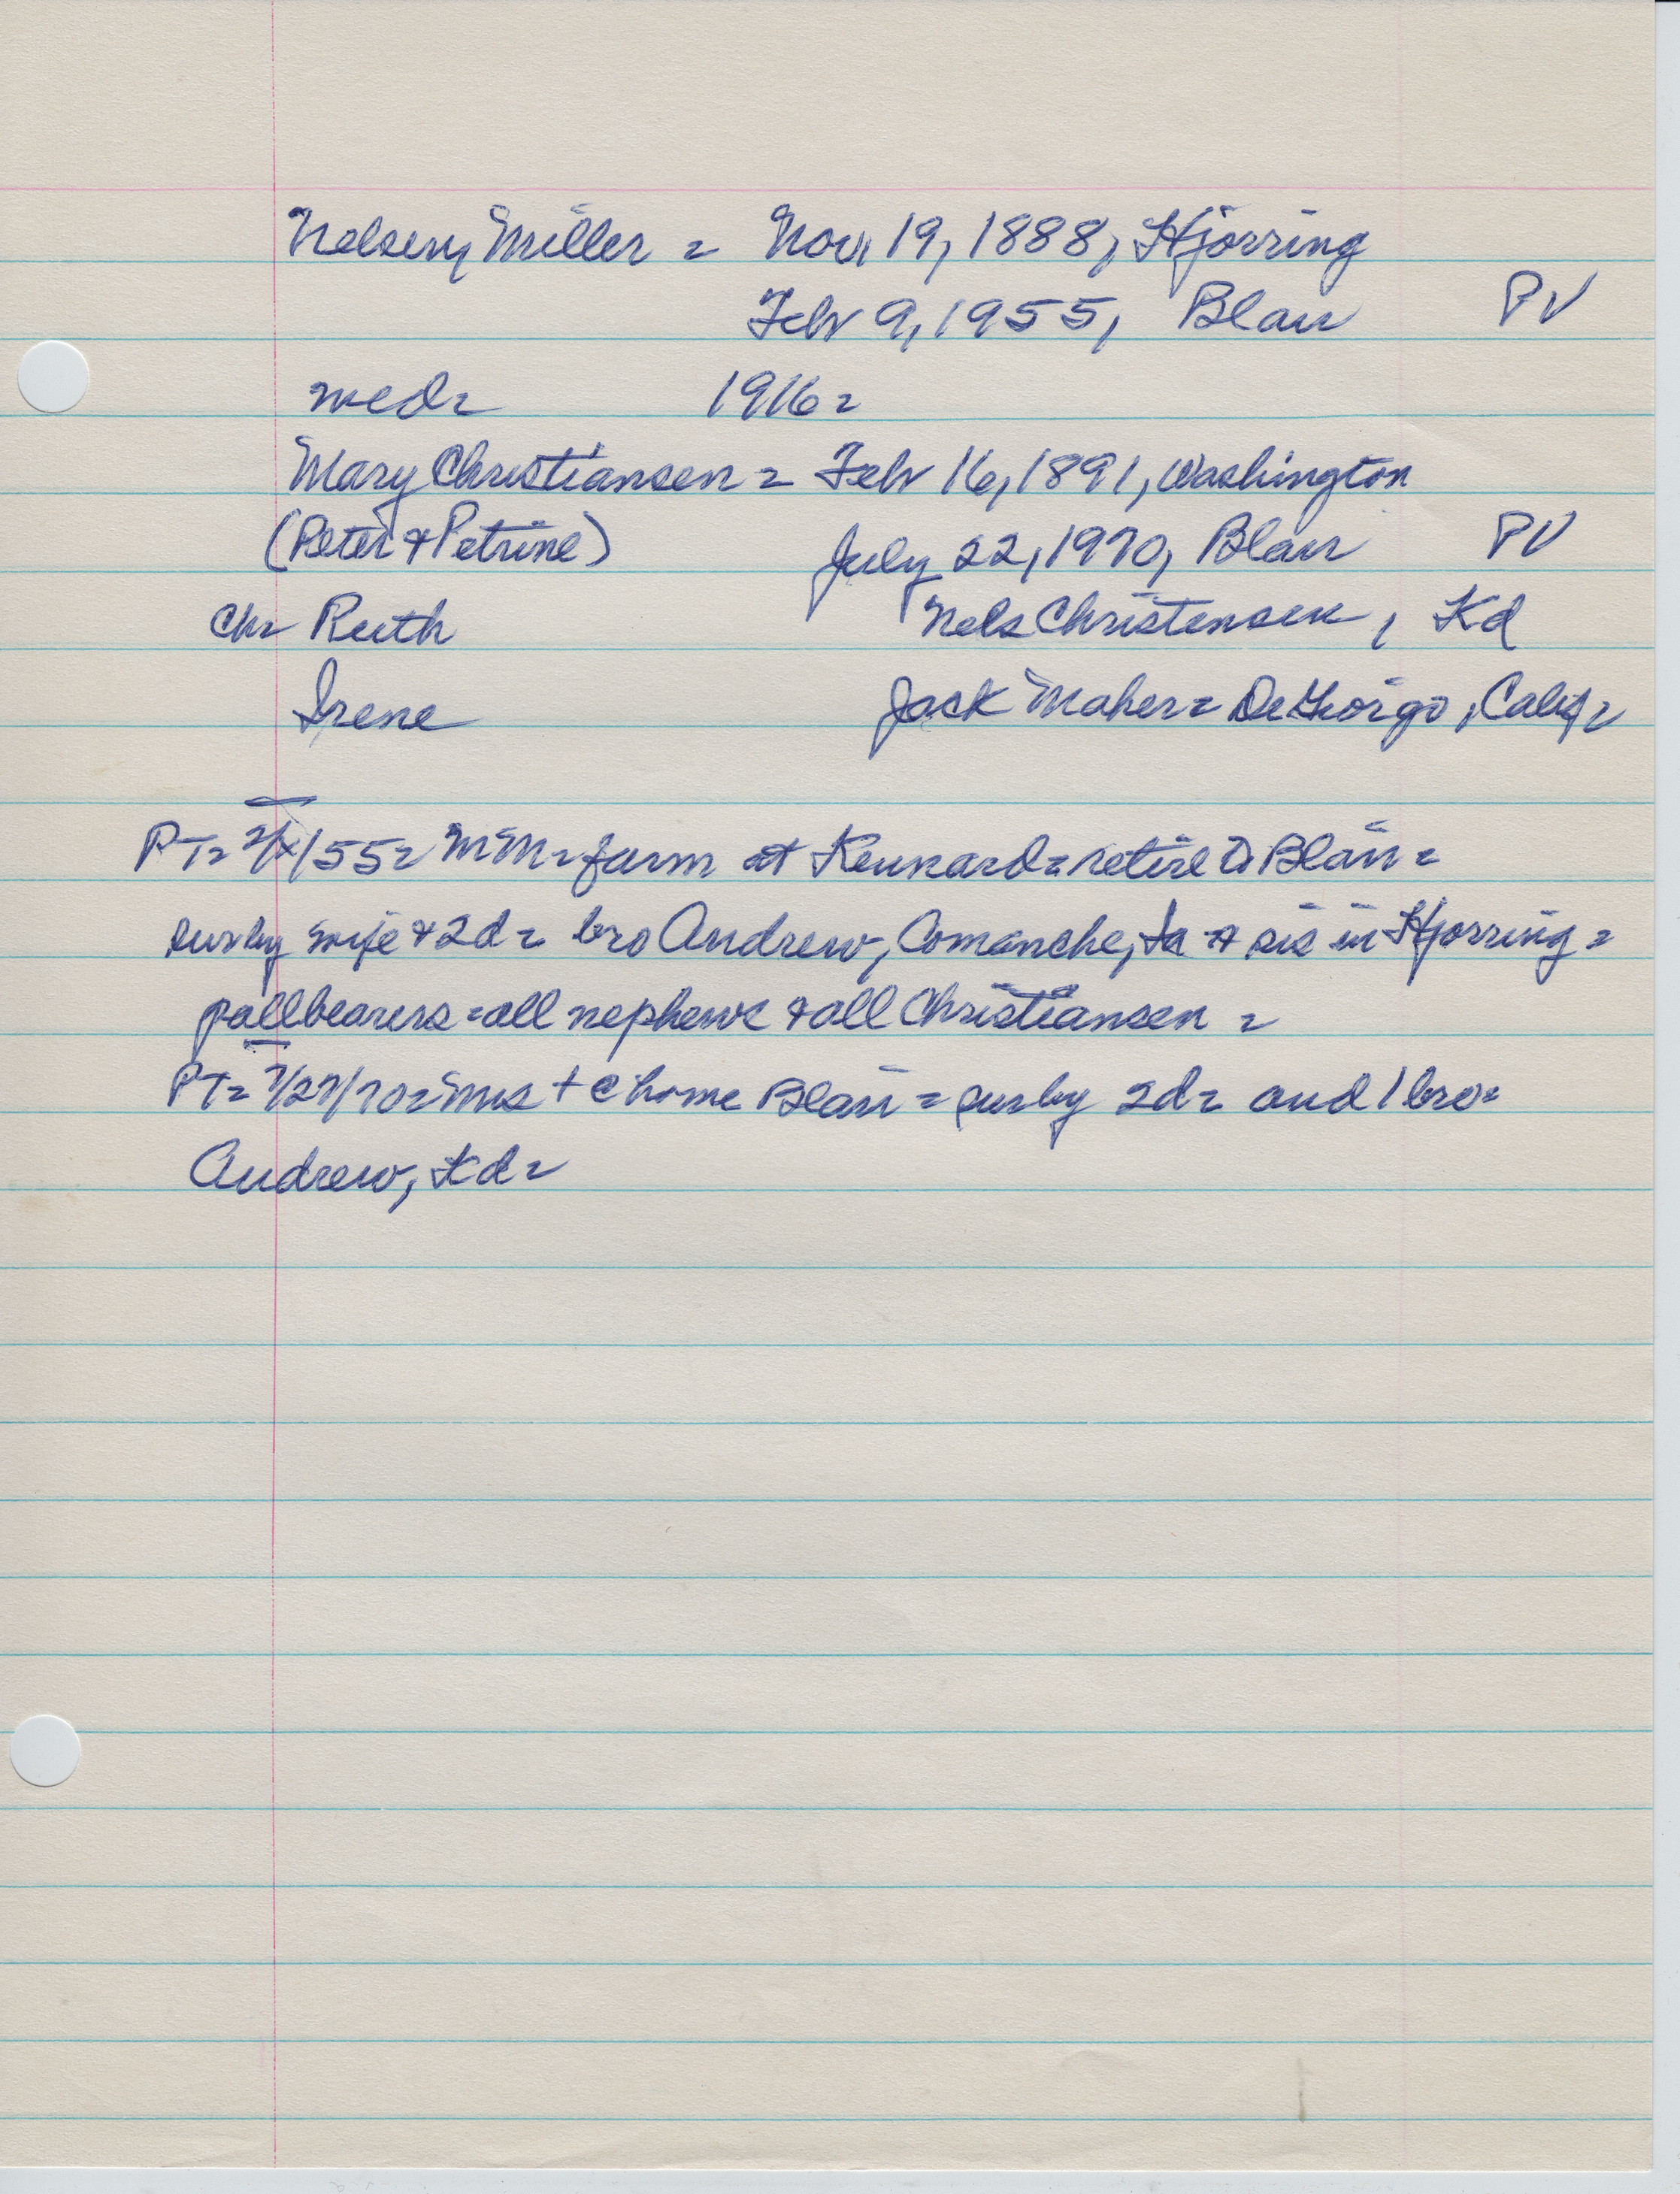 Nelseny Miller = Nov 19, 1888, Hjorring
Feb 9, 1955, Blair PV
med= 1916=
Mary Christiansen = Feb 16, 1891, Washington
(Peter & Petrine) July 22, 1970, Blair PV
ch= Ruth Nels Christensen, Kd
Irene Jack Maher= DeGeorgo, Calif=
PT= /55= MM= farm at Kennard= retire to Blair=
surby wife & 2d= bro Andrew, Comanche, Ia & sis in Hjorring=
pallbearers=all nephews & all Christiansen=
PT= 7/27/70= Mrs + @ home Blair= surby 2d= and 1 bro=
Andrew, Kd=